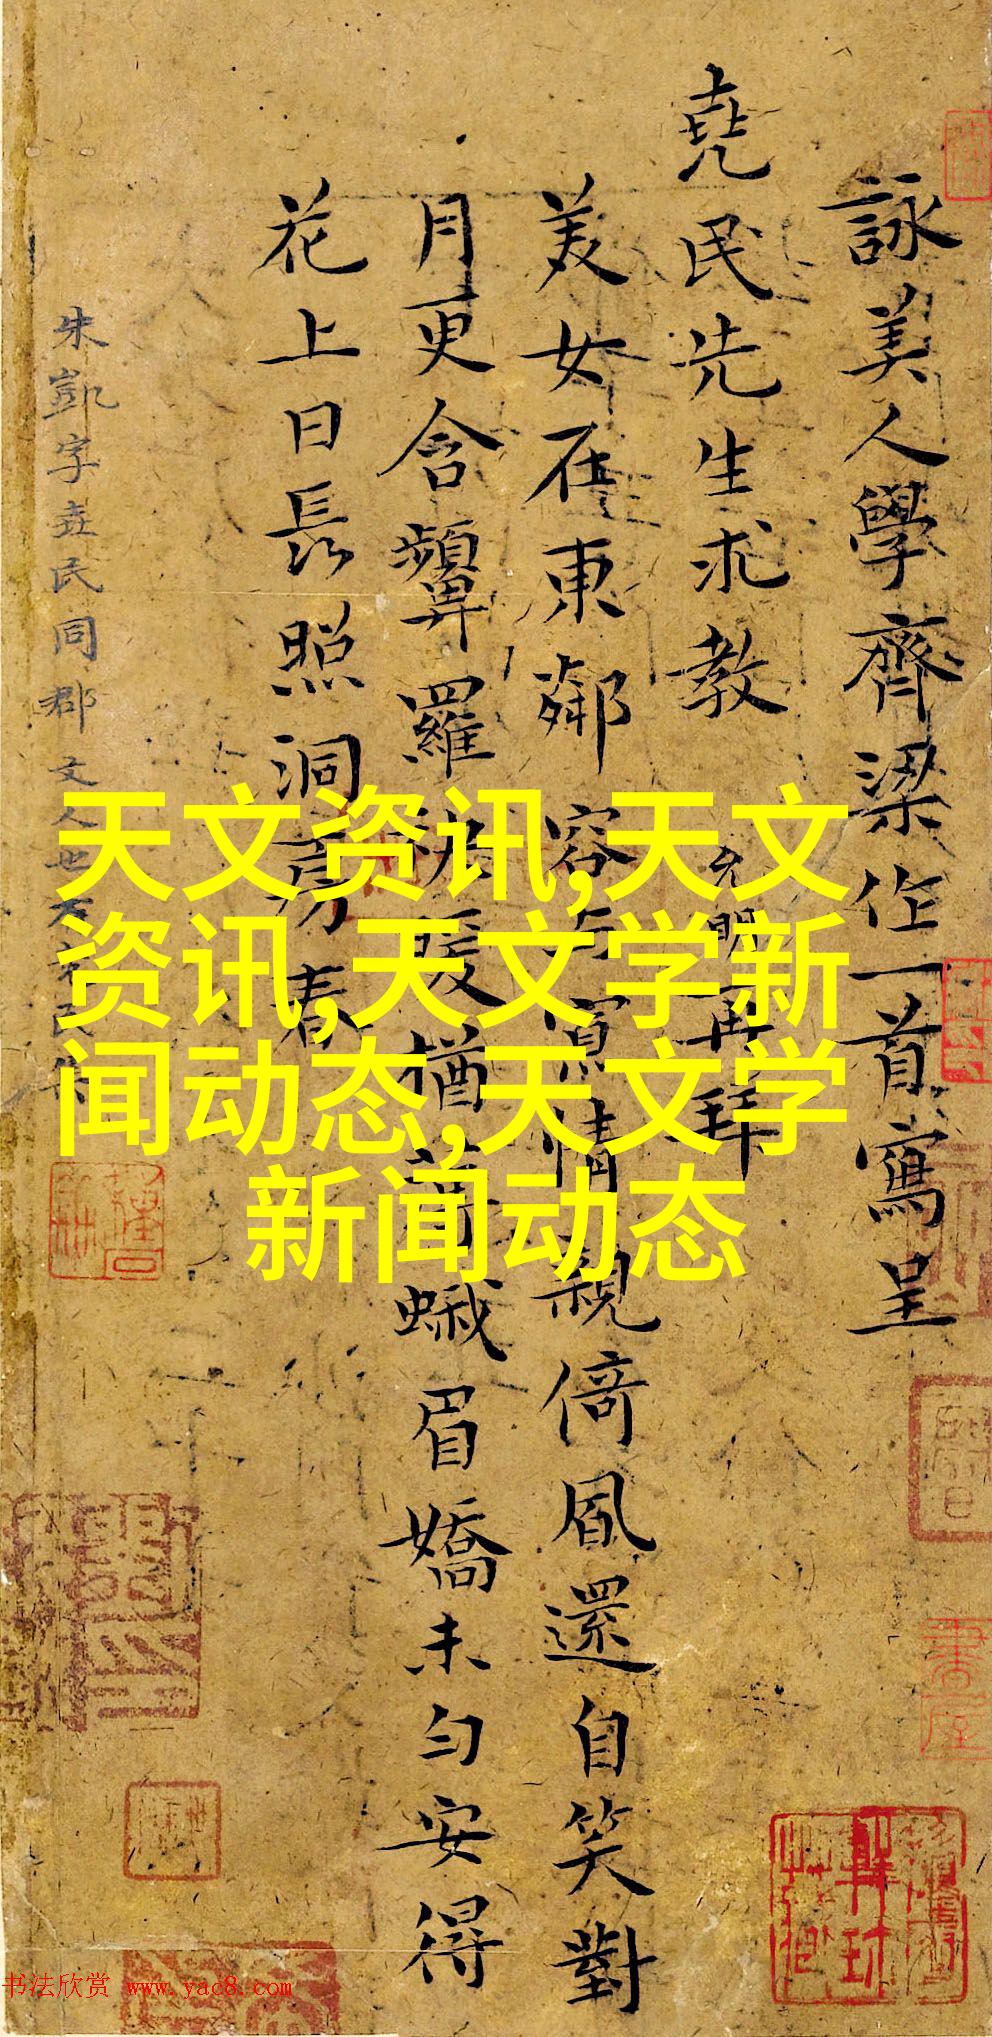 詠美人學齊梁作一首寫呈
堯民先生求教
再拜
美女在東鄰容情親倚風還自笑對
月更含顰羅暖猶蛾眉嬌未勻安得
花上日長照洞房春
朱凱字堯民同郡文人也
天文资讯,天文
资讯,天文学新
闻动态,天文学
新闻动态
书法欣赏 www.yac8.com